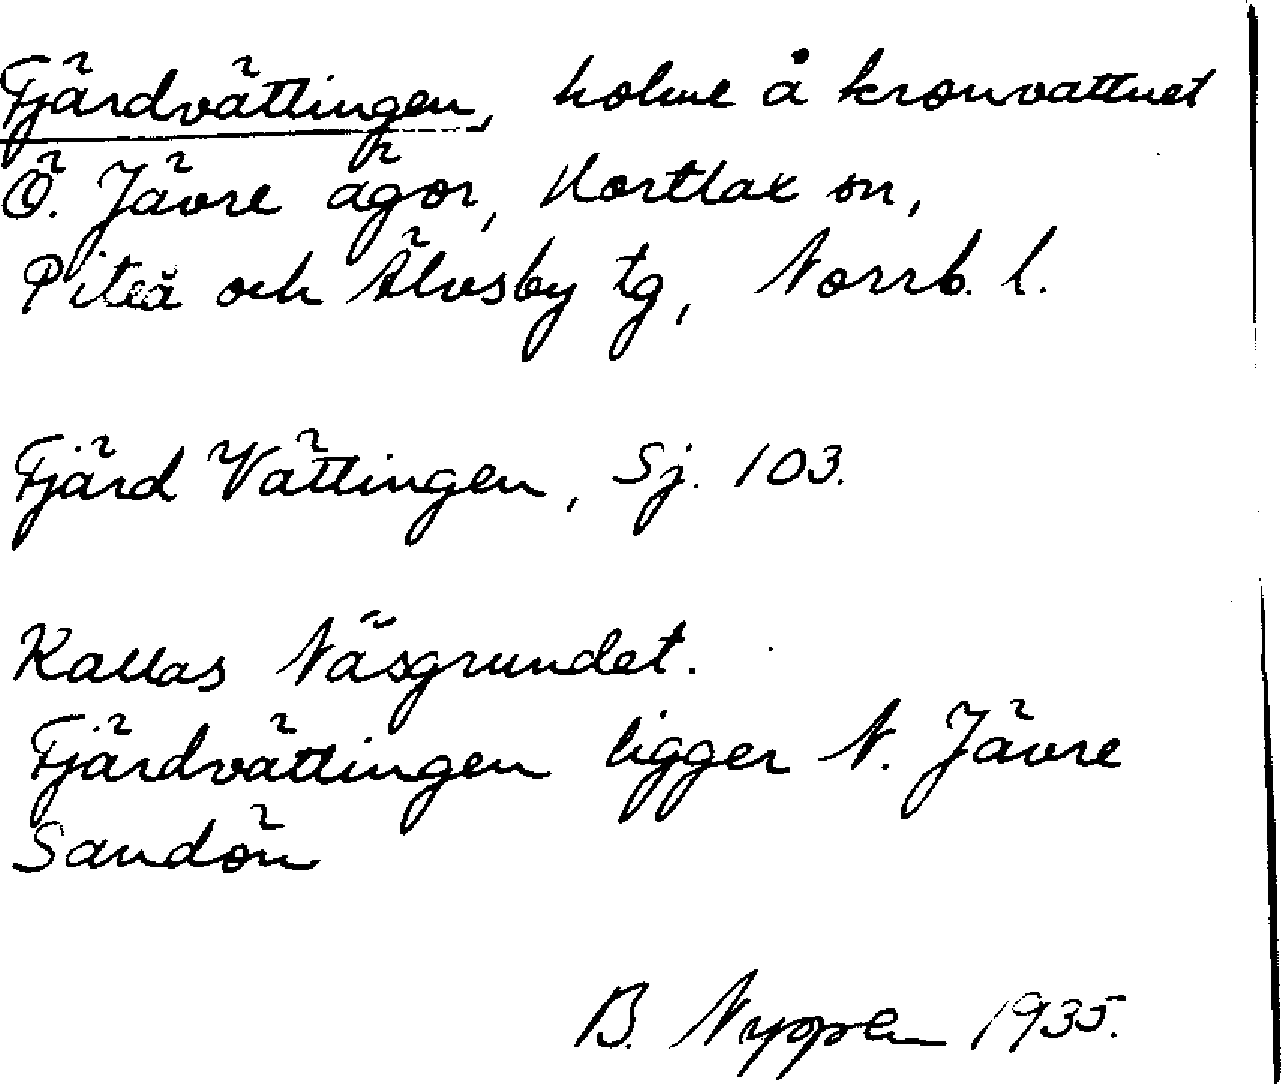 Fjärdvättingen, holme å kronvattnet
Ö. Jävre ägor, Hortlax sn,
Piteå och Älvsby tg, Norrb. l.
Fjärd Vättingen, Sj. 103.
Kallas Näsgrundet.
Fjärdvättingen ligger N. Jävre
Sandön
B. Nyppen 1935.